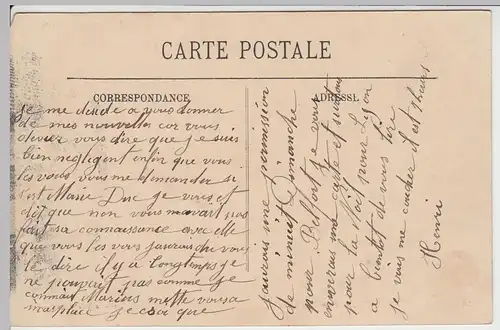 CARTE POSTALE
CORRESPONDANCE
ADRESSE
Je me décide a vous donner
de mes nouvelles car vous
devez vous dire que je suis
bien negligent enfin que vous
les vous vous me demander si
s'est Marie Duc je vous est
dit que non vous m'avait pas
fait sa connaissance avec elle
que vous les vous j'aurais che vous
le dire il y a longtemps je
ne pouvait pas comme je
connait Marius mette vous a
ma place je crois que
j'aurais une permission
de minuit Dimanche
pour Belfort je vous
enverrais une carte et surtout
pour la Noël pour Lyon
a bientot de vous lire
je vais me coucher il est 9 heures
Henri